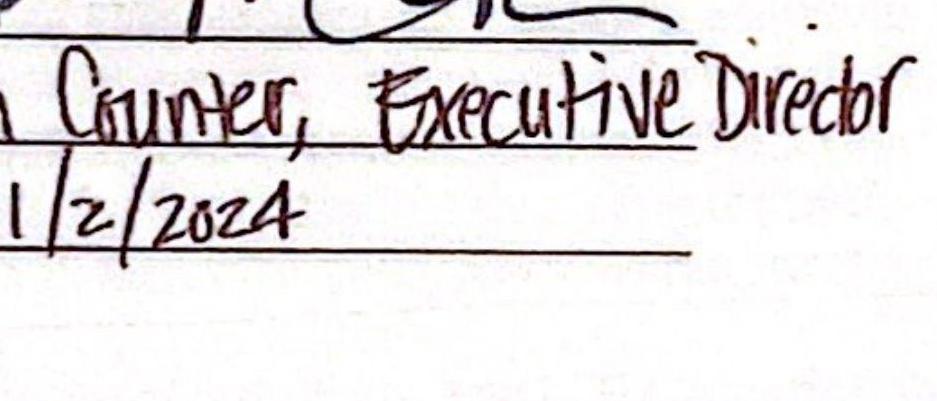 Counter, Executive Director
1/2/2024